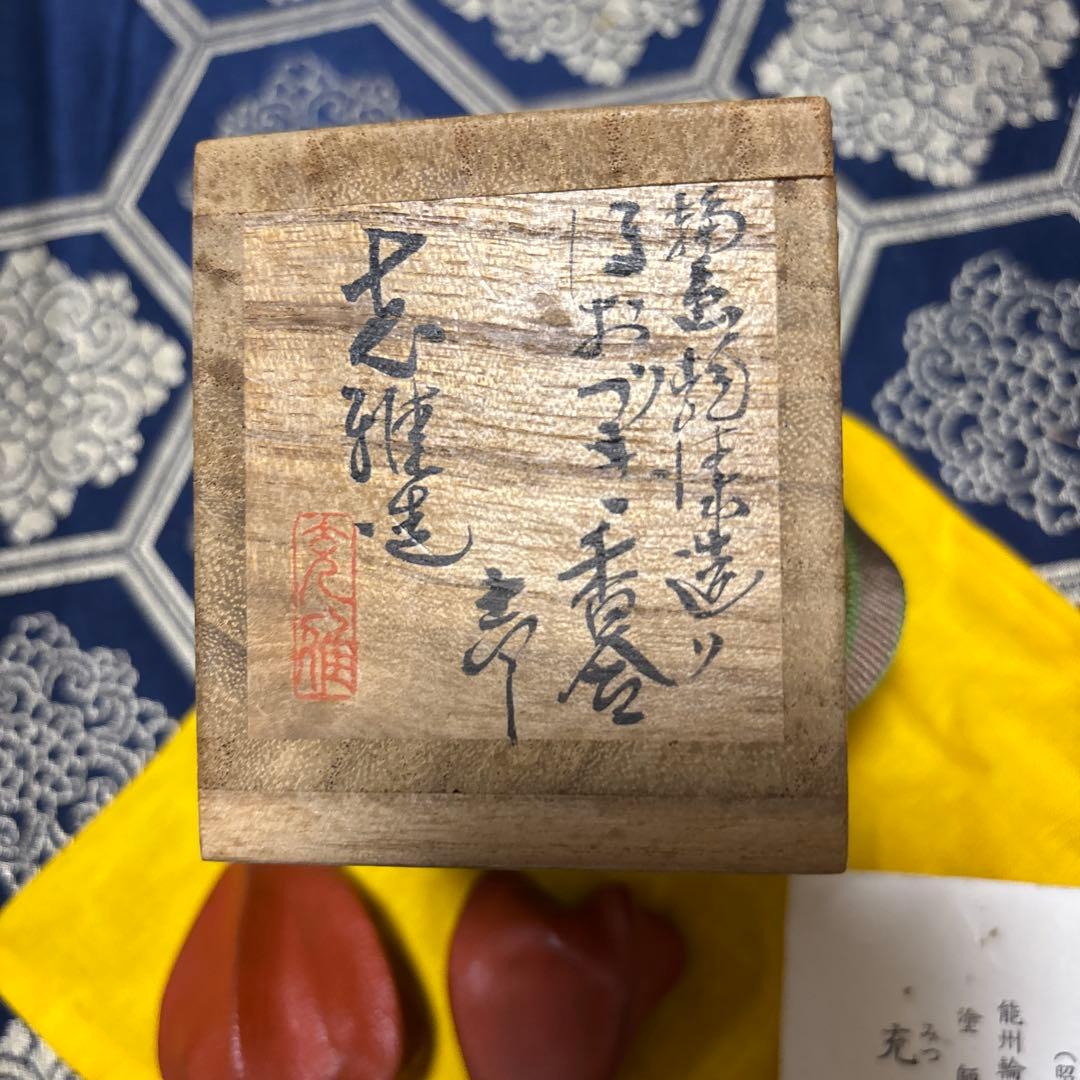 輪島乾漆造り
ほおづき香合
充雅造
充雅
(昭
能州輪
塗師
みつ
充